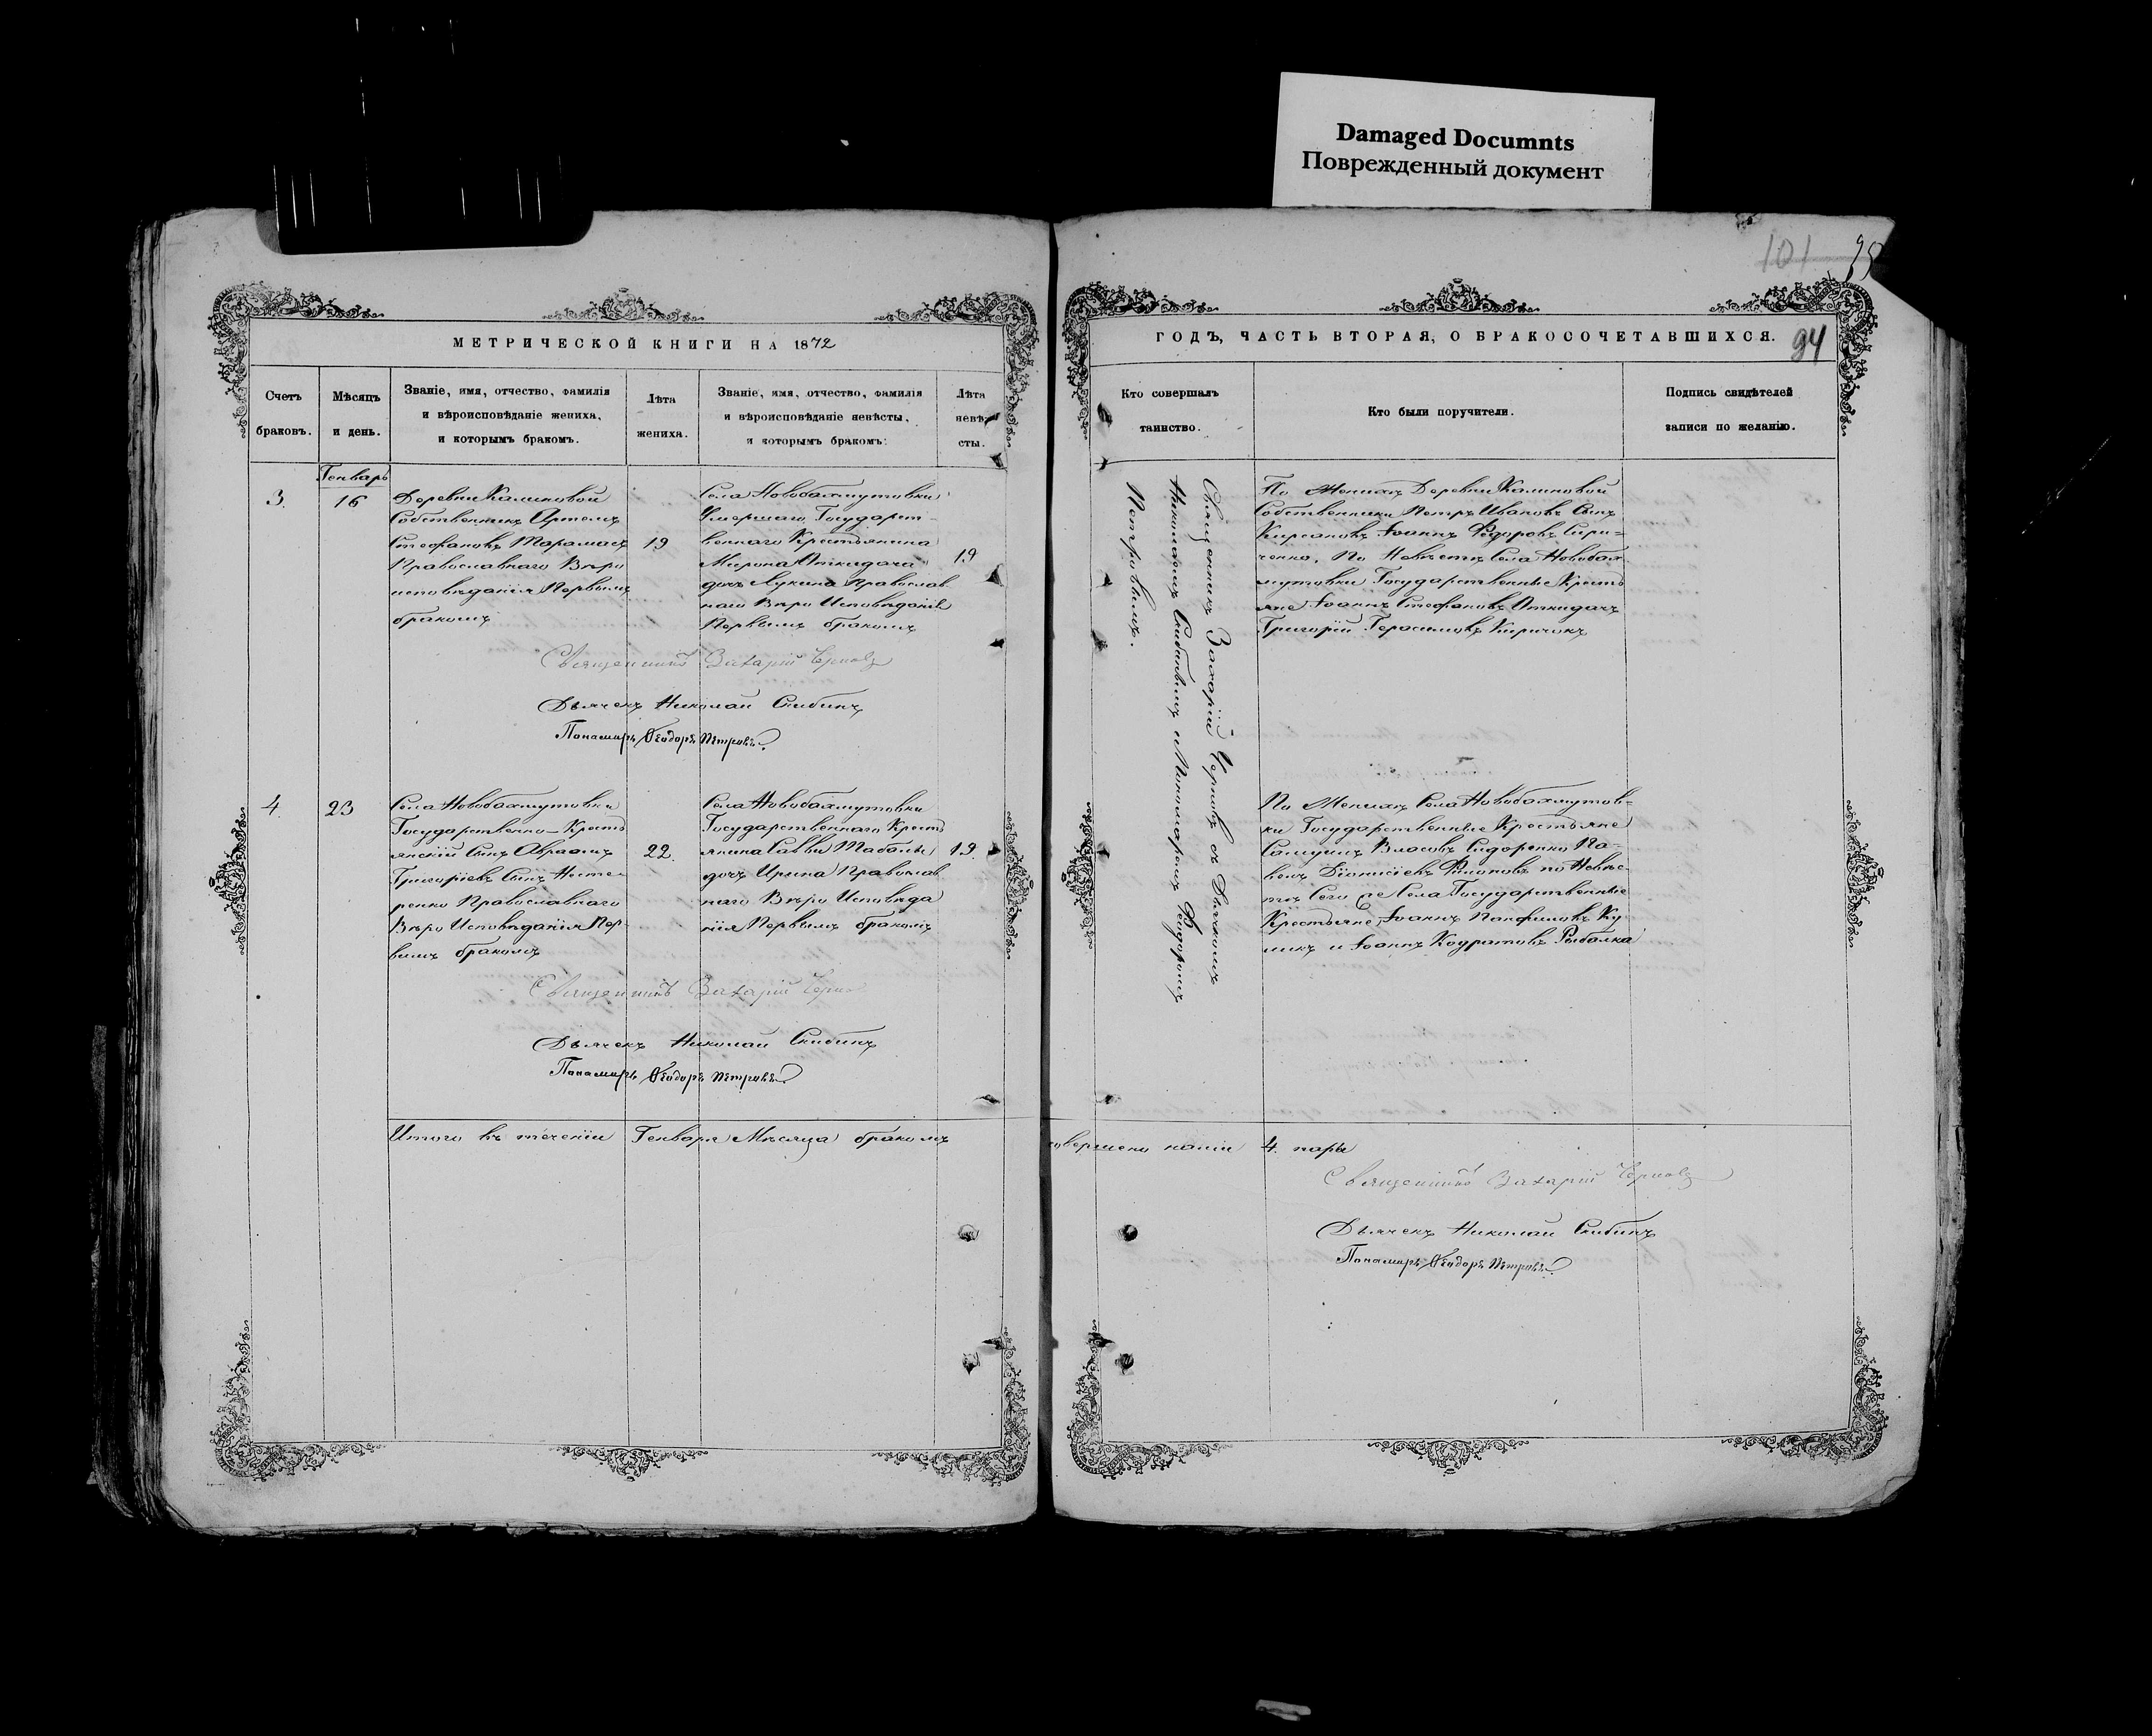 Damaged Documnts
Поврежденный документ
101
94
МЕТРИЧЕСКОЙ КНИГИ НА 1872
ГОДЪ, ЧАСТЬ ВТОРАЯ, О БРАКОСОЧЕТАВШИХСЯ.
Счетъ
браковъ.
Мѣсяцъ
и день.
Званіе, имя, отчество, фамилія
и вѣроисповѣданіе жениха,
и которымъ бракомъ.
Лѣта
жениха.
Званіе, имя, отчество, фамилія
и вѣроисповѣданіе невѣсты,
и которымъ бракомъ.
Лѣта
невѣ-
сты.
Кто совершалъ
таинство.
Кто были поручители.
Подпись свидѣтелей
записи по желанію.
Генварь
3.
16
Деревни Калиновой
Собственникъ Артемъ
Стефановъ Тарамасъ
Православнаго Вѣро
исповѣданія Первымъ
бракомъ
19
Села Новобахмутовки
Умершаго Государст-
веннаго Крестьянина
Мирона Откидача
дочь Лукина Православ
наго Вѣро Исповѣданія
Первымъ бракомъ
19
Священникъ Захарій Чернивъ съ Дьячкомъ
Николаемъ Скибинымъ и Пономаремъ Федоромъ
Петровымъ.
По Женихѣ Деревни Калиновой
Собственники Петръ Ивановъ Сынъ
Кирсановъ Іоаннъ Федоровъ Сири=
ченко, По Невѣстѣ Села Новобах-
мутовки Государственные Кресть
яне Іоаннъ Стефановъ Откидачъ
Григорій Герасимовъ Киричокъ
Священникъ Захарій
Дьячекъ Николай Скибинъ
Понамарь Ѳеодоръ Петровъ.
4.
23
Села Новобахмутовки
Государственно-Кресть
янскій Сынъ Авраамъ
Григорьевъ Сынъ Несте-
ренко Православнаго
Вѣро Исповѣданія Пер-
вымъ бракомъ
22.
Села Новобахмутовки
Государственнаго Кресть
янина Саввы Шабалы
дочь Ирина Православ
наго Вѣро Исповѣда
нія Первымъ бракомъ
19.
По Женихѣ Села Новобахмутов-
ки Государственные Крестьяне
Самуилъ Власовъ Сидоренко Па-
велъ Діонисіевъ Филоновъ по Невѣс-
тѣ Сего же Села Государственные
Крестьяне, Іоаннъ Панфиловъ Ку
ликъ и Іоаннъ Кодратовъ Рыбалка
Священникъ Захарій
Дьячекъ Николай Скибинъ
Понамарь Ѳеодоръ Петровъ
Итого въ теченіи Генваря Мѣсяца бракомъ совершено 4. пары
Священникъ Захарій
Дьячекъ Николай Скибинъ
Понамарь Ѳеодоръ Петровъ.